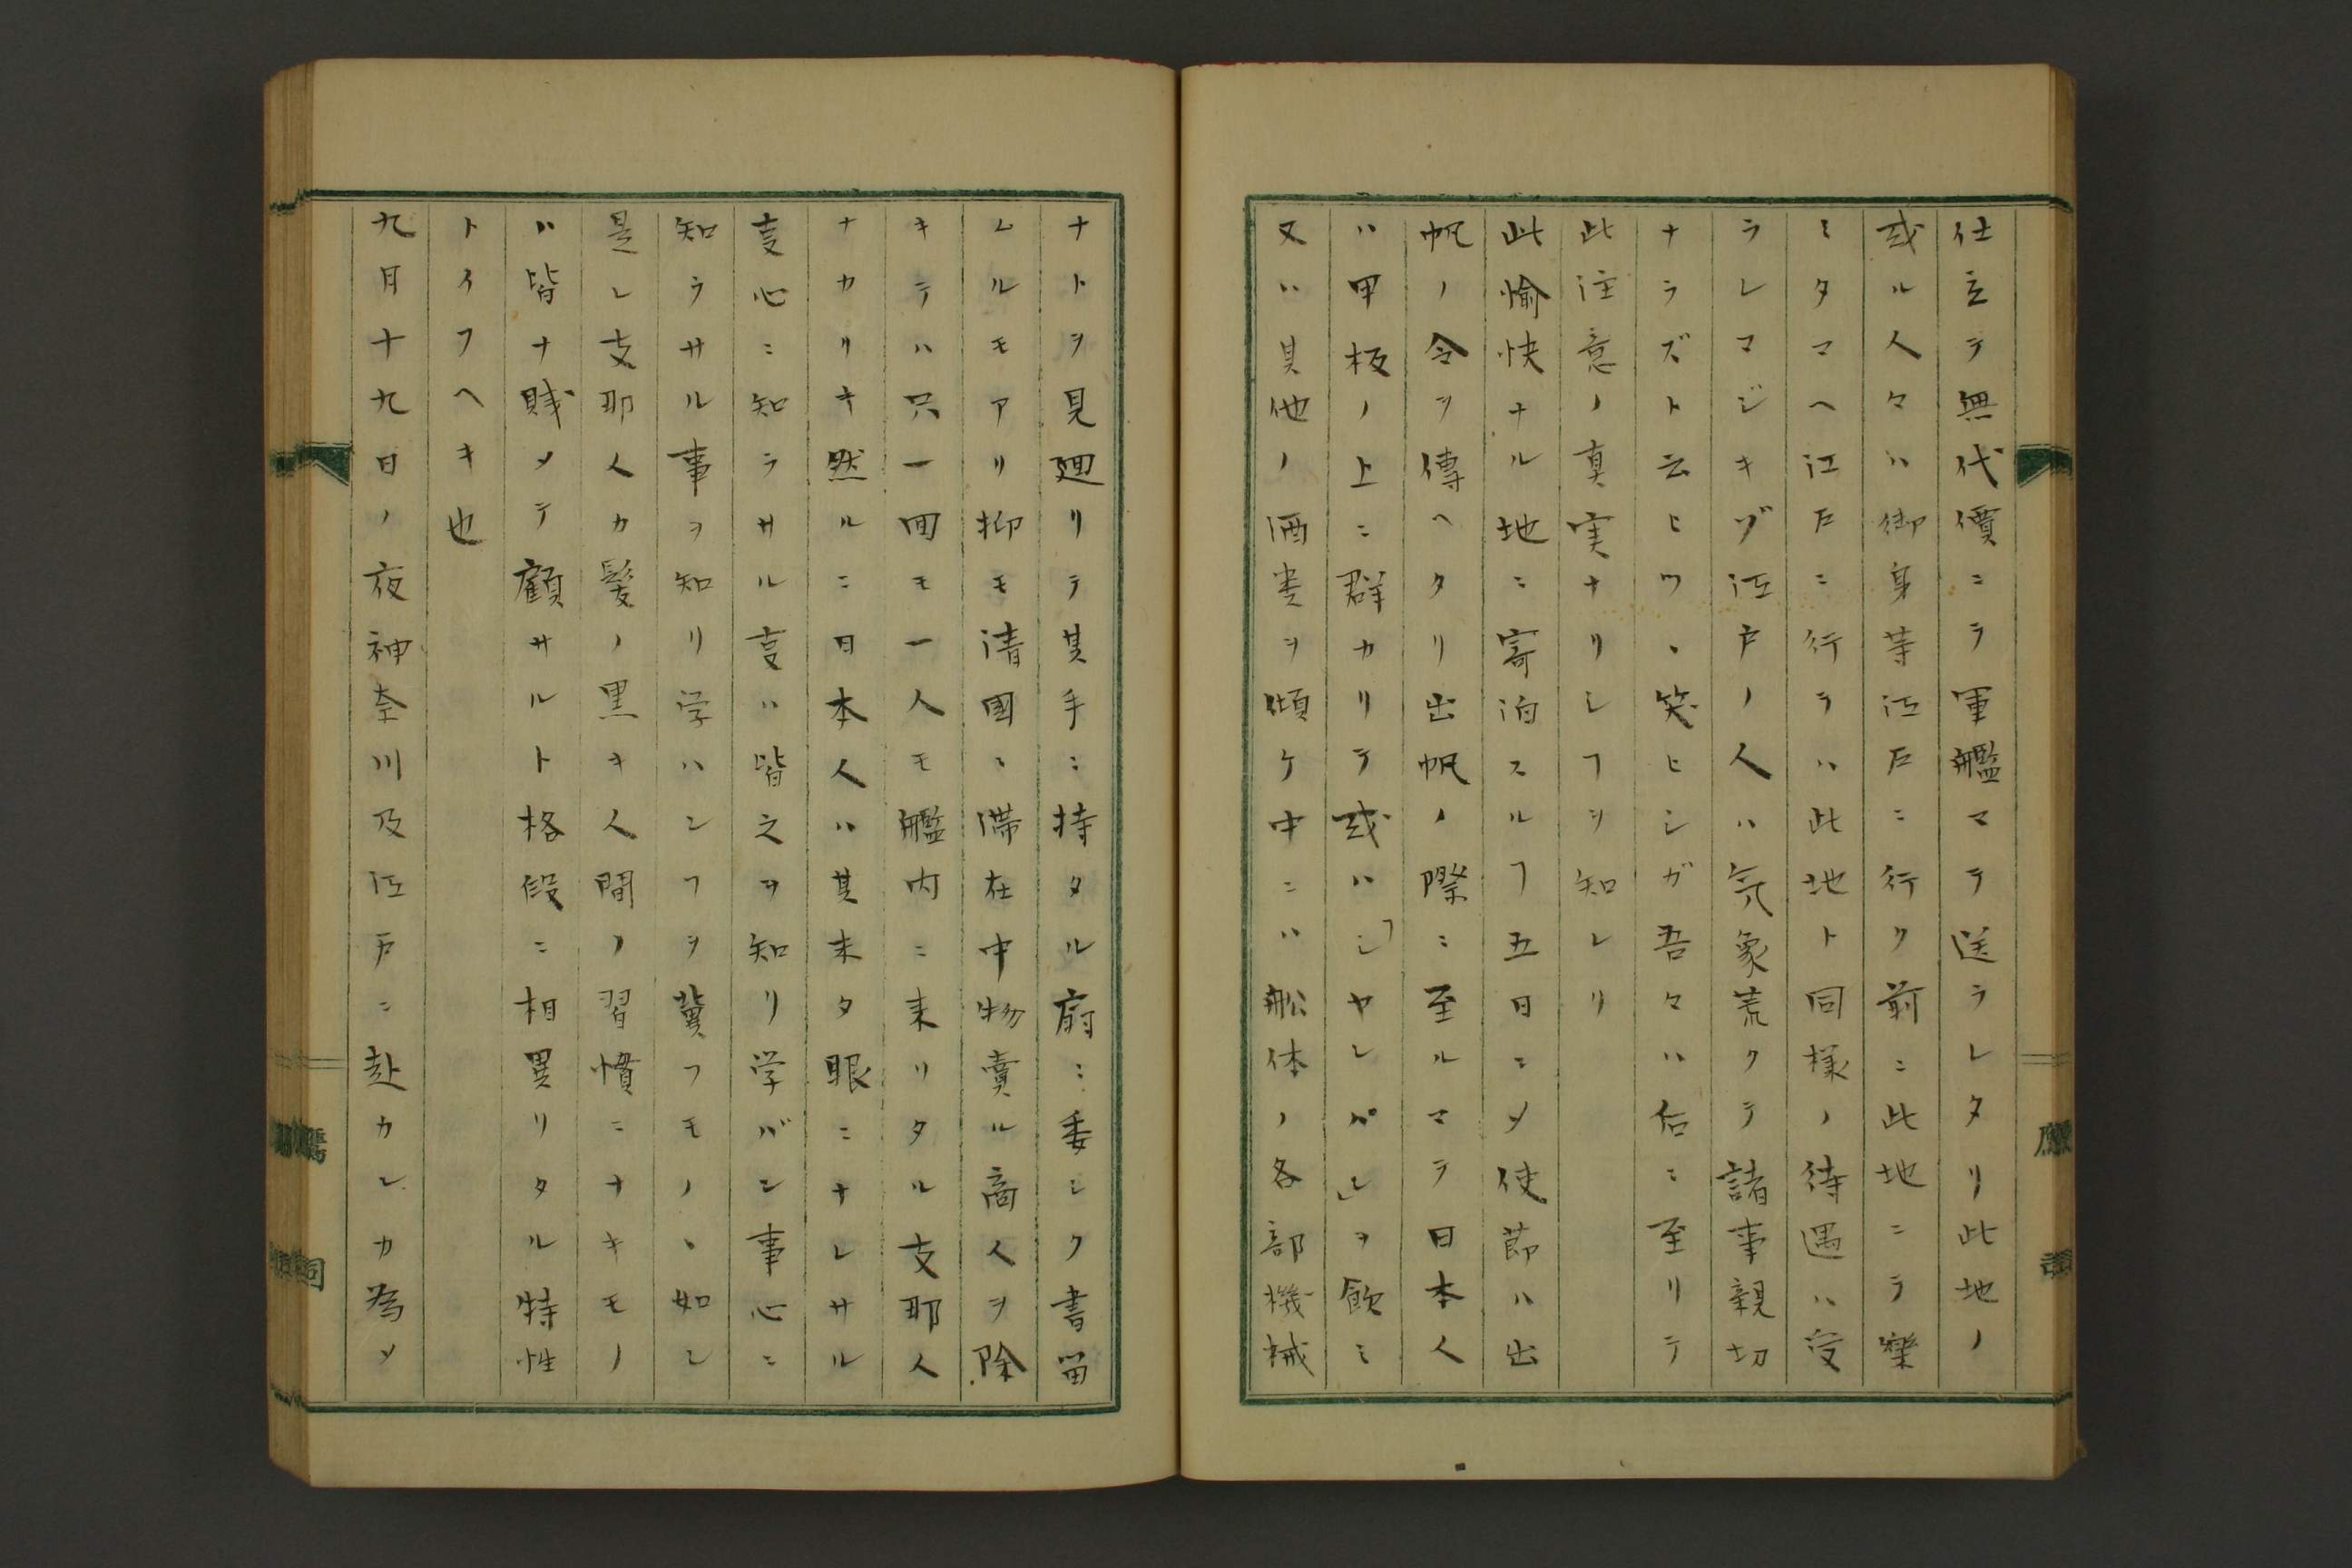 仕立テ無代價ニテ軍艦マテ送ラレタリ此地ノ
或ル人々ハ御身等江戸ニ行ク前ニ此地ニテ樂
ミタマヘ江戸ニ行テハ此地ト同様ノ待遇ハ受
ラレマジキゾ江戸ノ人ハ気象荒クテ諸事親切
ナラズト云ヒツヽ笑ヒシガ吾々ハ后ニ至リテ
此注意ノ真実ナリシヿヲ知レリ
此愉快ナル地ニ寄泊スルヿ五日ニメ使節ハ出
帆ノ令ヲ傳ヘタリ出帆ノ際ニ至ルマテ日本人
ハ甲板ノ上ニ群カリテ或ハ「シヤレパレ」ヲ飲ミ
又ハ其他ノ酒類ヲ傾ケ中ニハ舩体ノ各部機械
ナトヲ見廻リテ其手ニ持タル扇ニ委シク書留
ムルモアリ抑モ清國ニ滞在中物賣ル商人ヲ除
キテハ只一回モ一人モ艦内ニ来リタル支那人
ナカリキ然ルニ日本人ハ其未タ眼ニナレサル
叓心ニ知ラサル叓ハ皆之ヲ知リ学バン事心ニ
知ラサル事ヲ知リ学ハンヿヲ冀フモノヽ如シ
是レ支那人カ髪ノ黒キ人間ノ習慣ニナキモノ
ハ皆ナ賎メテ顧サルト格段ニ相異リタル特性
トイフヘキ也
九月十九日ノ夜神奈川及江戸ニ赴カンカ為メ